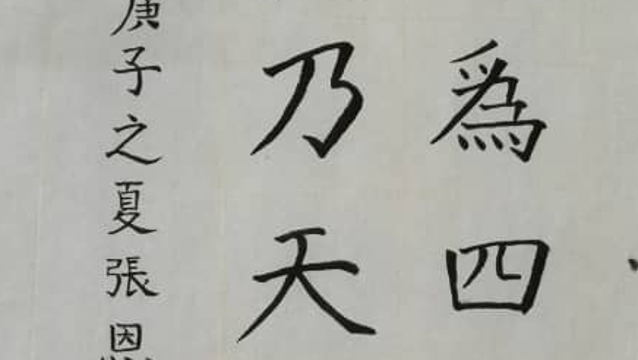 為四
乃天
庚子之夏張恩